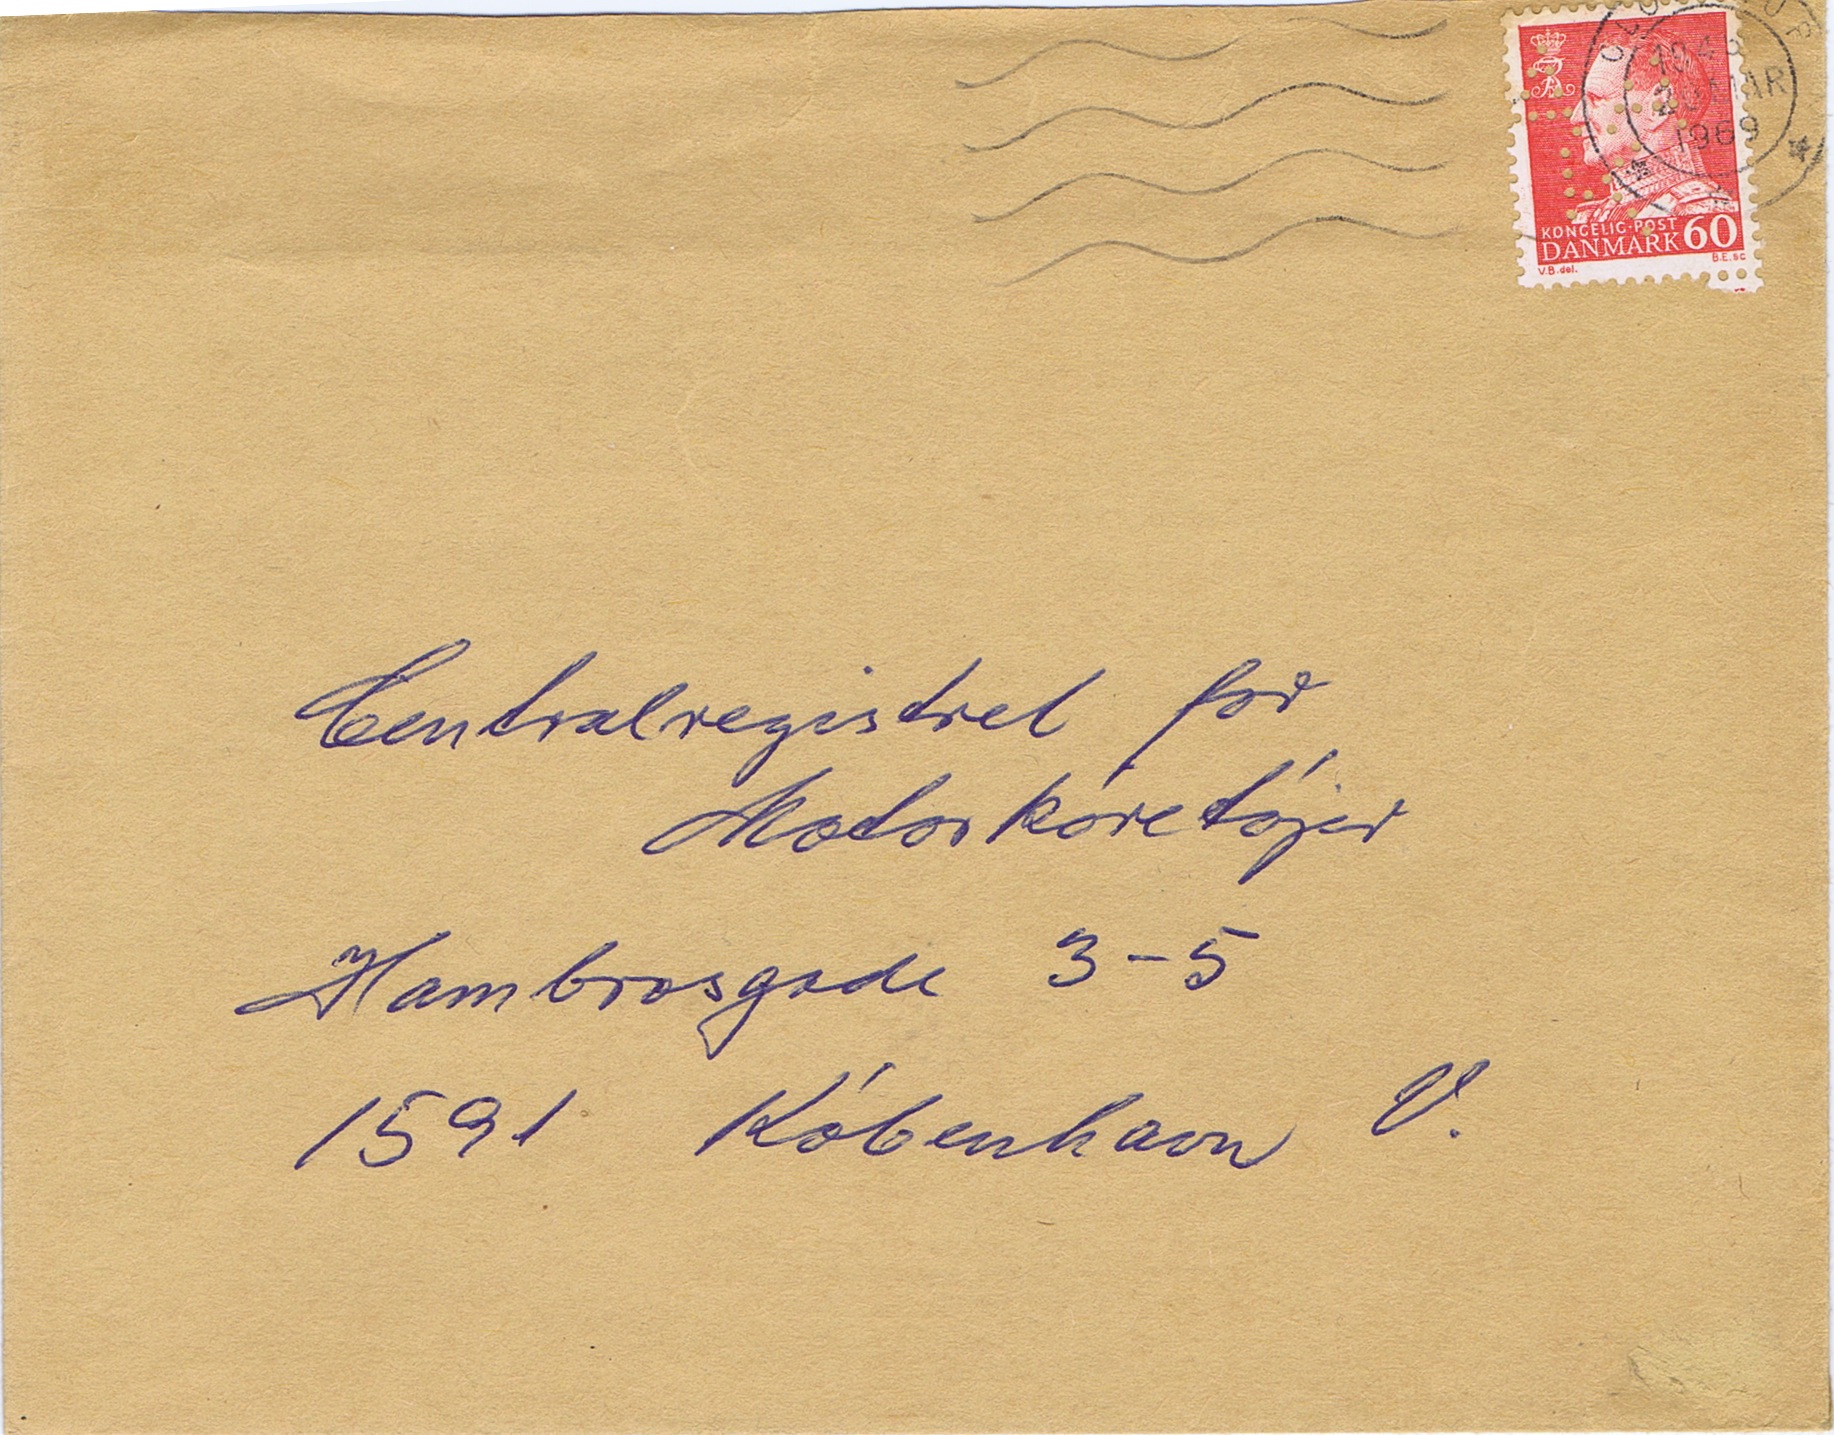 1969
KONGELIG·POST
DANMARK 60
V.B. del. B.E. sc
Centralregistret for
Motorkøretøjer
Hambrosgade 3-5
1591 København V.